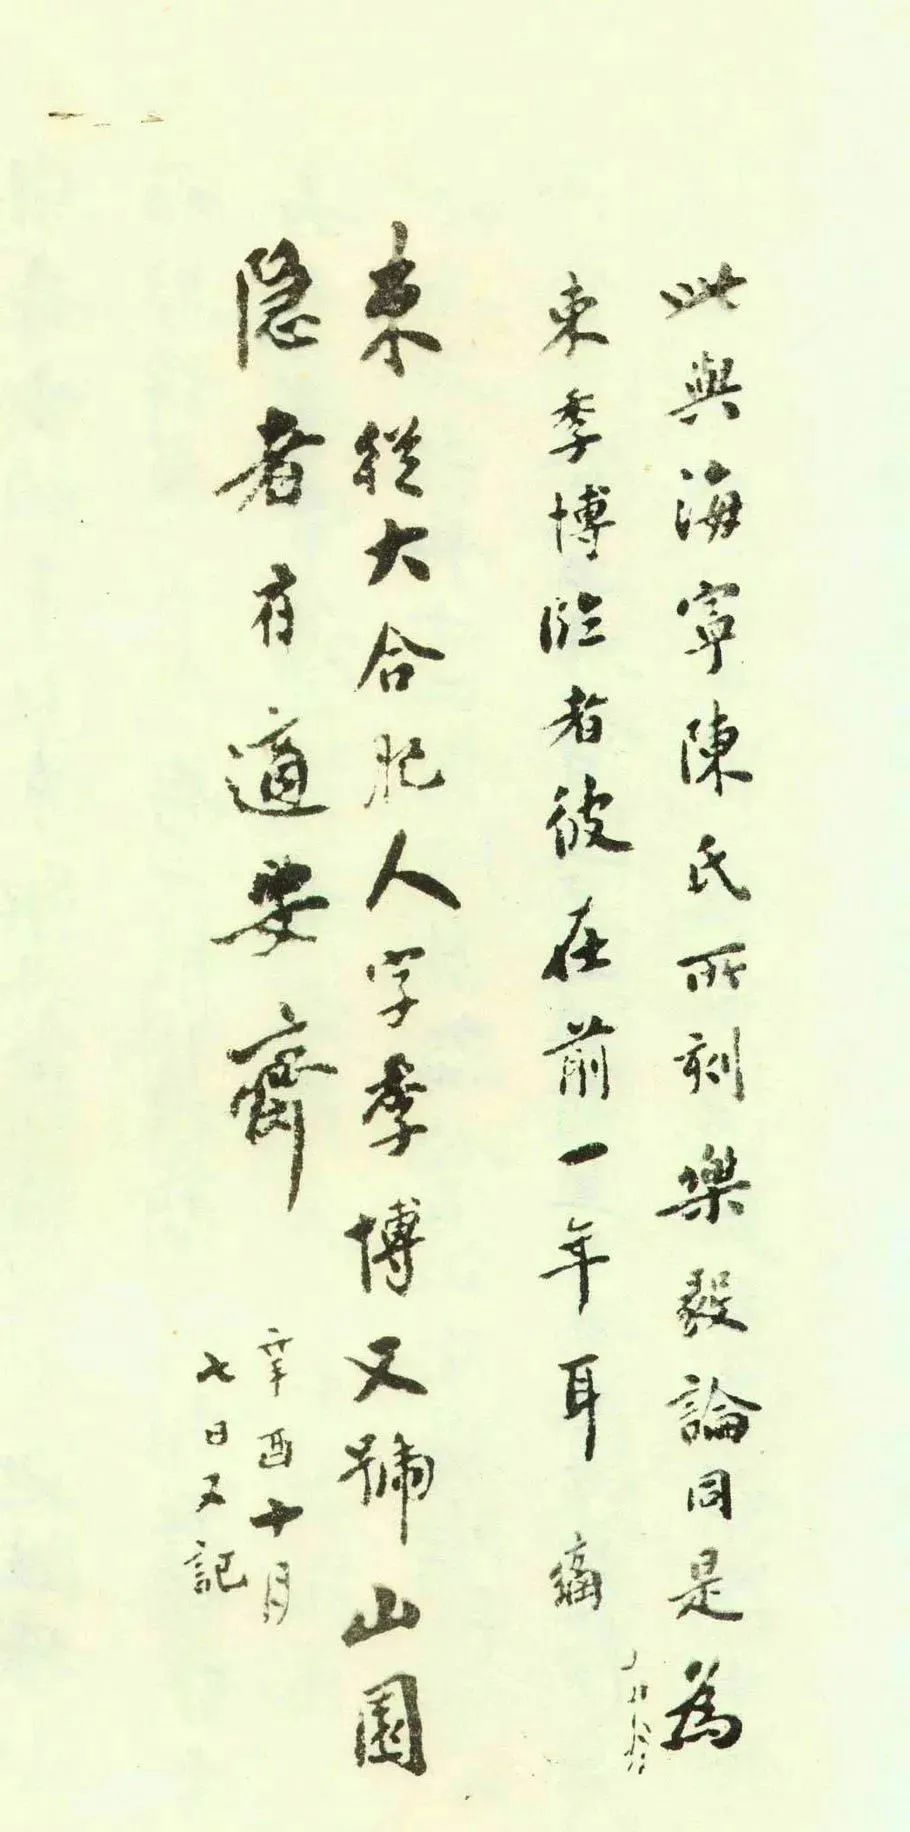 此與海寧陳氏所刻樂毅論同是為
束季博臨者彼在前一年耳
束從大合肥人字季博又號山園
隐者有適安齋
辛酉十月
七日又記